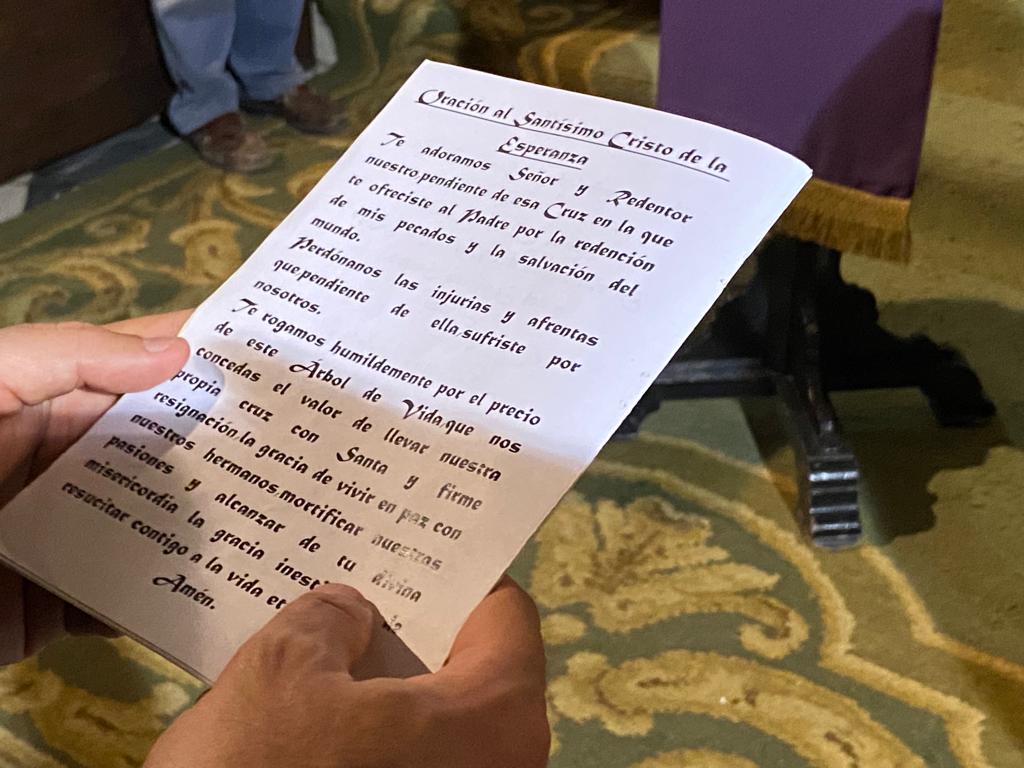 Oración al Santísimo Cristo de la
Esperanza
Te adoramos Señor y Redentor
nuestro,pendiente de esa Cruz en la que
te ofreciste al Padre por la redención
de mis pecados y la salvación del
mundo.
Perdónanos las injurias y afrentas
que,pendiente de ella,sufriste por
nosotros.
Te rogamos humildemente por el precio
de este Árbol de Vida,que nos
concedas el valor de llevar nuestra
propia cruz con Santa y firme
resignación,la gracia de vivir en paz con
nuestros hermanos,mortificar nuestras
pasiones y alcanzar de tu divina
misericordia la gracia de
resucitar contigo a la vida
Amén.